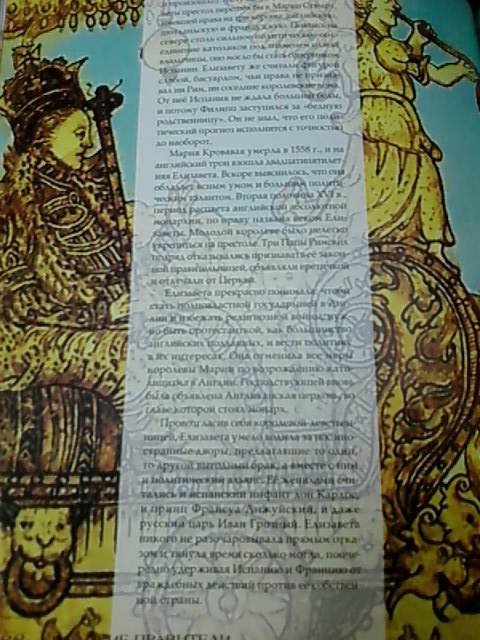 лы престол перешел бы к Марии Стюарт,
имевшей права на три короны: английскую,
шотландскую и французскую. Появление на
севере столь сильного политического объ-
единение католиков под знаменем одной
владычицы, оно могло бы стать соперником
Испании. Елизавету же считали фигурой
слабой, бастардом, чьи права не призна-
вал ни Рим, ни соседние королевские дома.
От неё Испания не ждала большой беды,
и потому Филипп заступился за «бедную
родственницу». Он не знал, что его поли-
тический прогноз исполнится с точностью
до наоборот.
Мария Кровавая умерла в 1558 г., и на
английский трон взошла двадцатипятилет-
няя Елизавета. Вскоре выяснилось, что она
обладает ясным умом и большим полити-
ческим талантом. Вторая половина XVI в.,
период расцвета английской абсолютной
монархии, по праву названа веком Ели-
заветы. Молодой королеве было нелегко
укрепиться на престоле. Три Папы Римских
подряд отказывались признавать её закон-
ной правительницей, объявляли еретичкой
и отлучали от Церкви.
Елизавета прекрасно понимала: чтобы
стать полновластной государыней в Анг-
лии и избежать религиозной войны, нуж-
но быть протестанткой, как большинство
английских подданных, и вести политику
в их интересах. Она отменила все меры
королевы Марии по возрождению като-
лицизма в Англии. Господствующей вновь
была объявлена Англиканская церковь, во
главе которой стоял монарх.
Провозгласив себя королевой-девствен-
ницей, Елизавета умело водила за нос ино-
странные дворы, предлагавшие то один,
то другой выгодный брак, а вместе с ним
и политический альянс. Её женихами счи-
тались и испанский инфант дон Карлос,
и принц Франсуа Анжуйский, и даже
русский царь Иван Грозный. Елизавета
никого не разочаровывала прямым отка-
зом и тянула время сколько могла, пооче-
редно удерживая Испанию и Францию от
враждебных действий против её собствен-
ной страны.
ПРАВИТЕЛИ